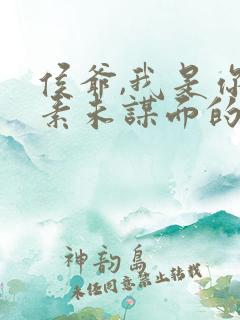 侯爷,我是你
素未谋而的
神韵岛
未经同意禁止转载